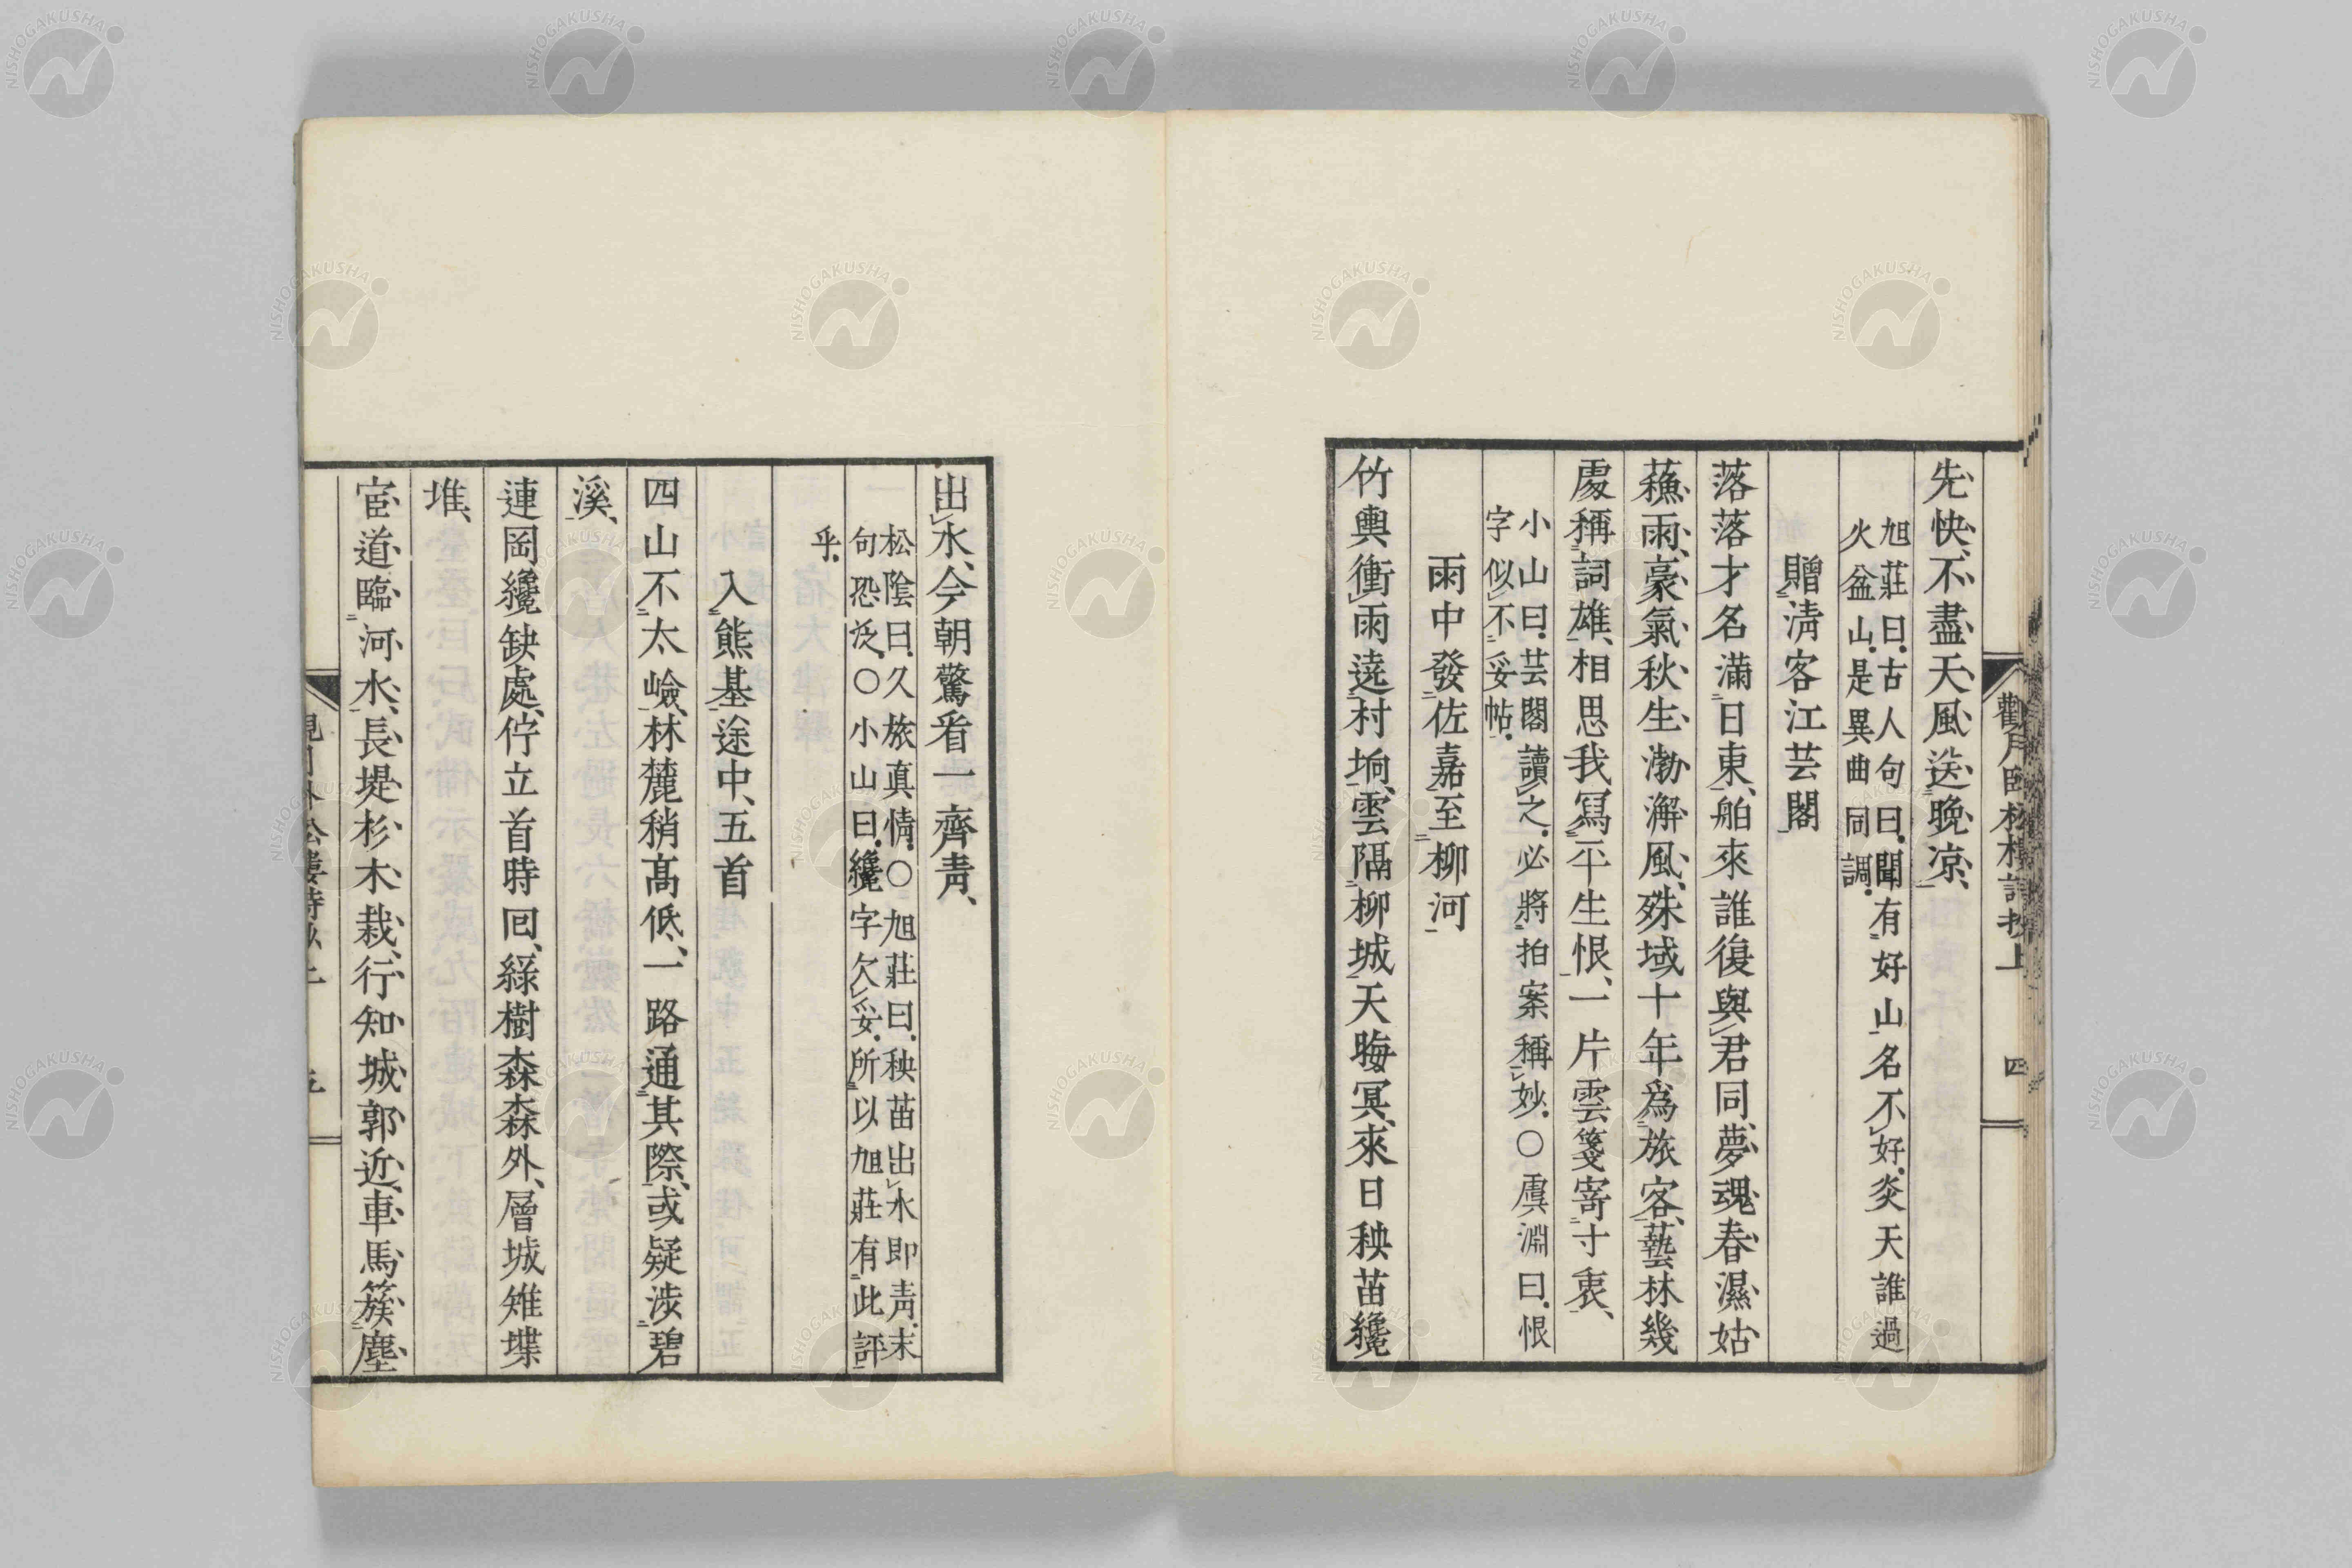 觀月臥松樓詩抄上
四
先快、不盡天風送晚凉、
旭莊曰．古人句曰．聞有好山名不好．炎天誰過
火盆山．是異曲同調．
贈清客江芸閣
落落才名滿日東、舶來誰復與君同、夢魂春濕姑
蘓雨、豪氣秋生渤澥風、殊域十年爲旅客、藝林幾
處稱詞雄、相思我冩平生恨、一片雲箋寄寸衷、
小山曰．芸閣讀之．必將拍案稱妙．○虞淵曰．恨
字似不妥帖．
雨中發佐嘉至柳河
竹輿衝雨遶村坰、雲隔柳城天晦冥、來日秧苗纔
出水、今朝驚看一齊青、
松陰曰．久旅真情．○旭莊曰．秧苗出水即青．末
句恐泛．○小山曰．纔字欠妥．所以旭莊有此評
乎．
入熊基途中、五首
四山不太嶮、林麓稍高低、一路通其際、或疑涉碧
溪、
連岡纔缺處、佇立首時回、綠樹森森外、層城雉堞
堆、
宦道臨河水、長堤杉木栽、行知城郭近、車馬簇塵